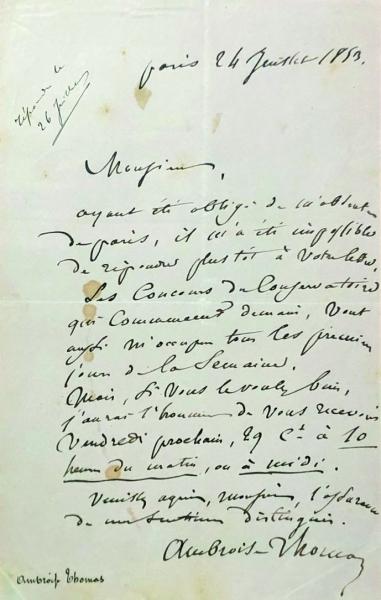 paris 24 Juillet 1853.
répondu le
26 Juillet
Monsieur,
ayant été obligé de m'absenter
de paris, il m'a été impossible
de répondre plustôt à votre lettre,
Les Concours du Conservatoire
qui Commencent demain, vont
aussi m'occuper tous les premiers
jours de la Semaine.
Mais, Si Vous le voulez bien,
j'aurai l'honneur de vous recevoir
Vendredi prochain, 29 Ct à 10
heures du matin, ou à midi.
Veuillez agréer, monsieur, l'assurance
de mes Sentimens distingués.
Ambroise Thomas
Ambroise Thomas